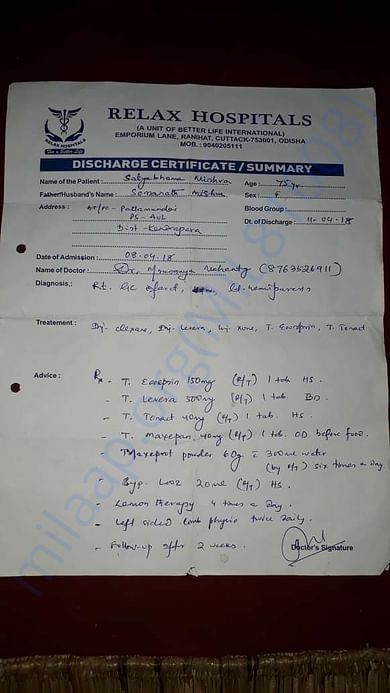 RELAX HOSPITALS
(A UNIT OF BETTER LIFE INTERNATIONAL)
EMPORIUM LANE, RANIHAT, CUTTACK-753001, ODISHA
MOB. : 9040205111
RELAX HOSPITALS
For a Better Life
DISCHARGE CERTIFICATE / SUMMARY
Name of the Patient : Satyabhama Mishra Age : 75 yr
Father/Husband's Name : Somanath Mishra Sex : F
Address : AT/PO - Pattamundai Blood Group :
PS - AUL Dt. of Discharge : 11-04-18
Dist - Kendrapara
Date of Admission : 08-04-18
Name of Doctor : Dr. Mohanty (8763526911)
Diagnosis : Rt. infarct, Lt. hemiparesis
Treatement : Inj. clexane, Inj. Levera, Inj. T. Ecosprin, T. Tonact
Advice : Rx - T. Ecosprin 150mg (R/T) 1 tab HS.
- T. Levera 500mg (R/T) 1 tab. BD
- T. Tonact 40mg (R/T) 1 tab. HS.
- T. 40mg (R/T) 1 tab. OD before food.
- powder 60g c 300ml water
(by R/T) six times a day
- Syp. Looz 20ml (R/T) HS.
- Lemon therapy 4 times a day.
- Left sided limb physio twice daily.
- Follow-up after 2 weeks.
Doctor's Signature